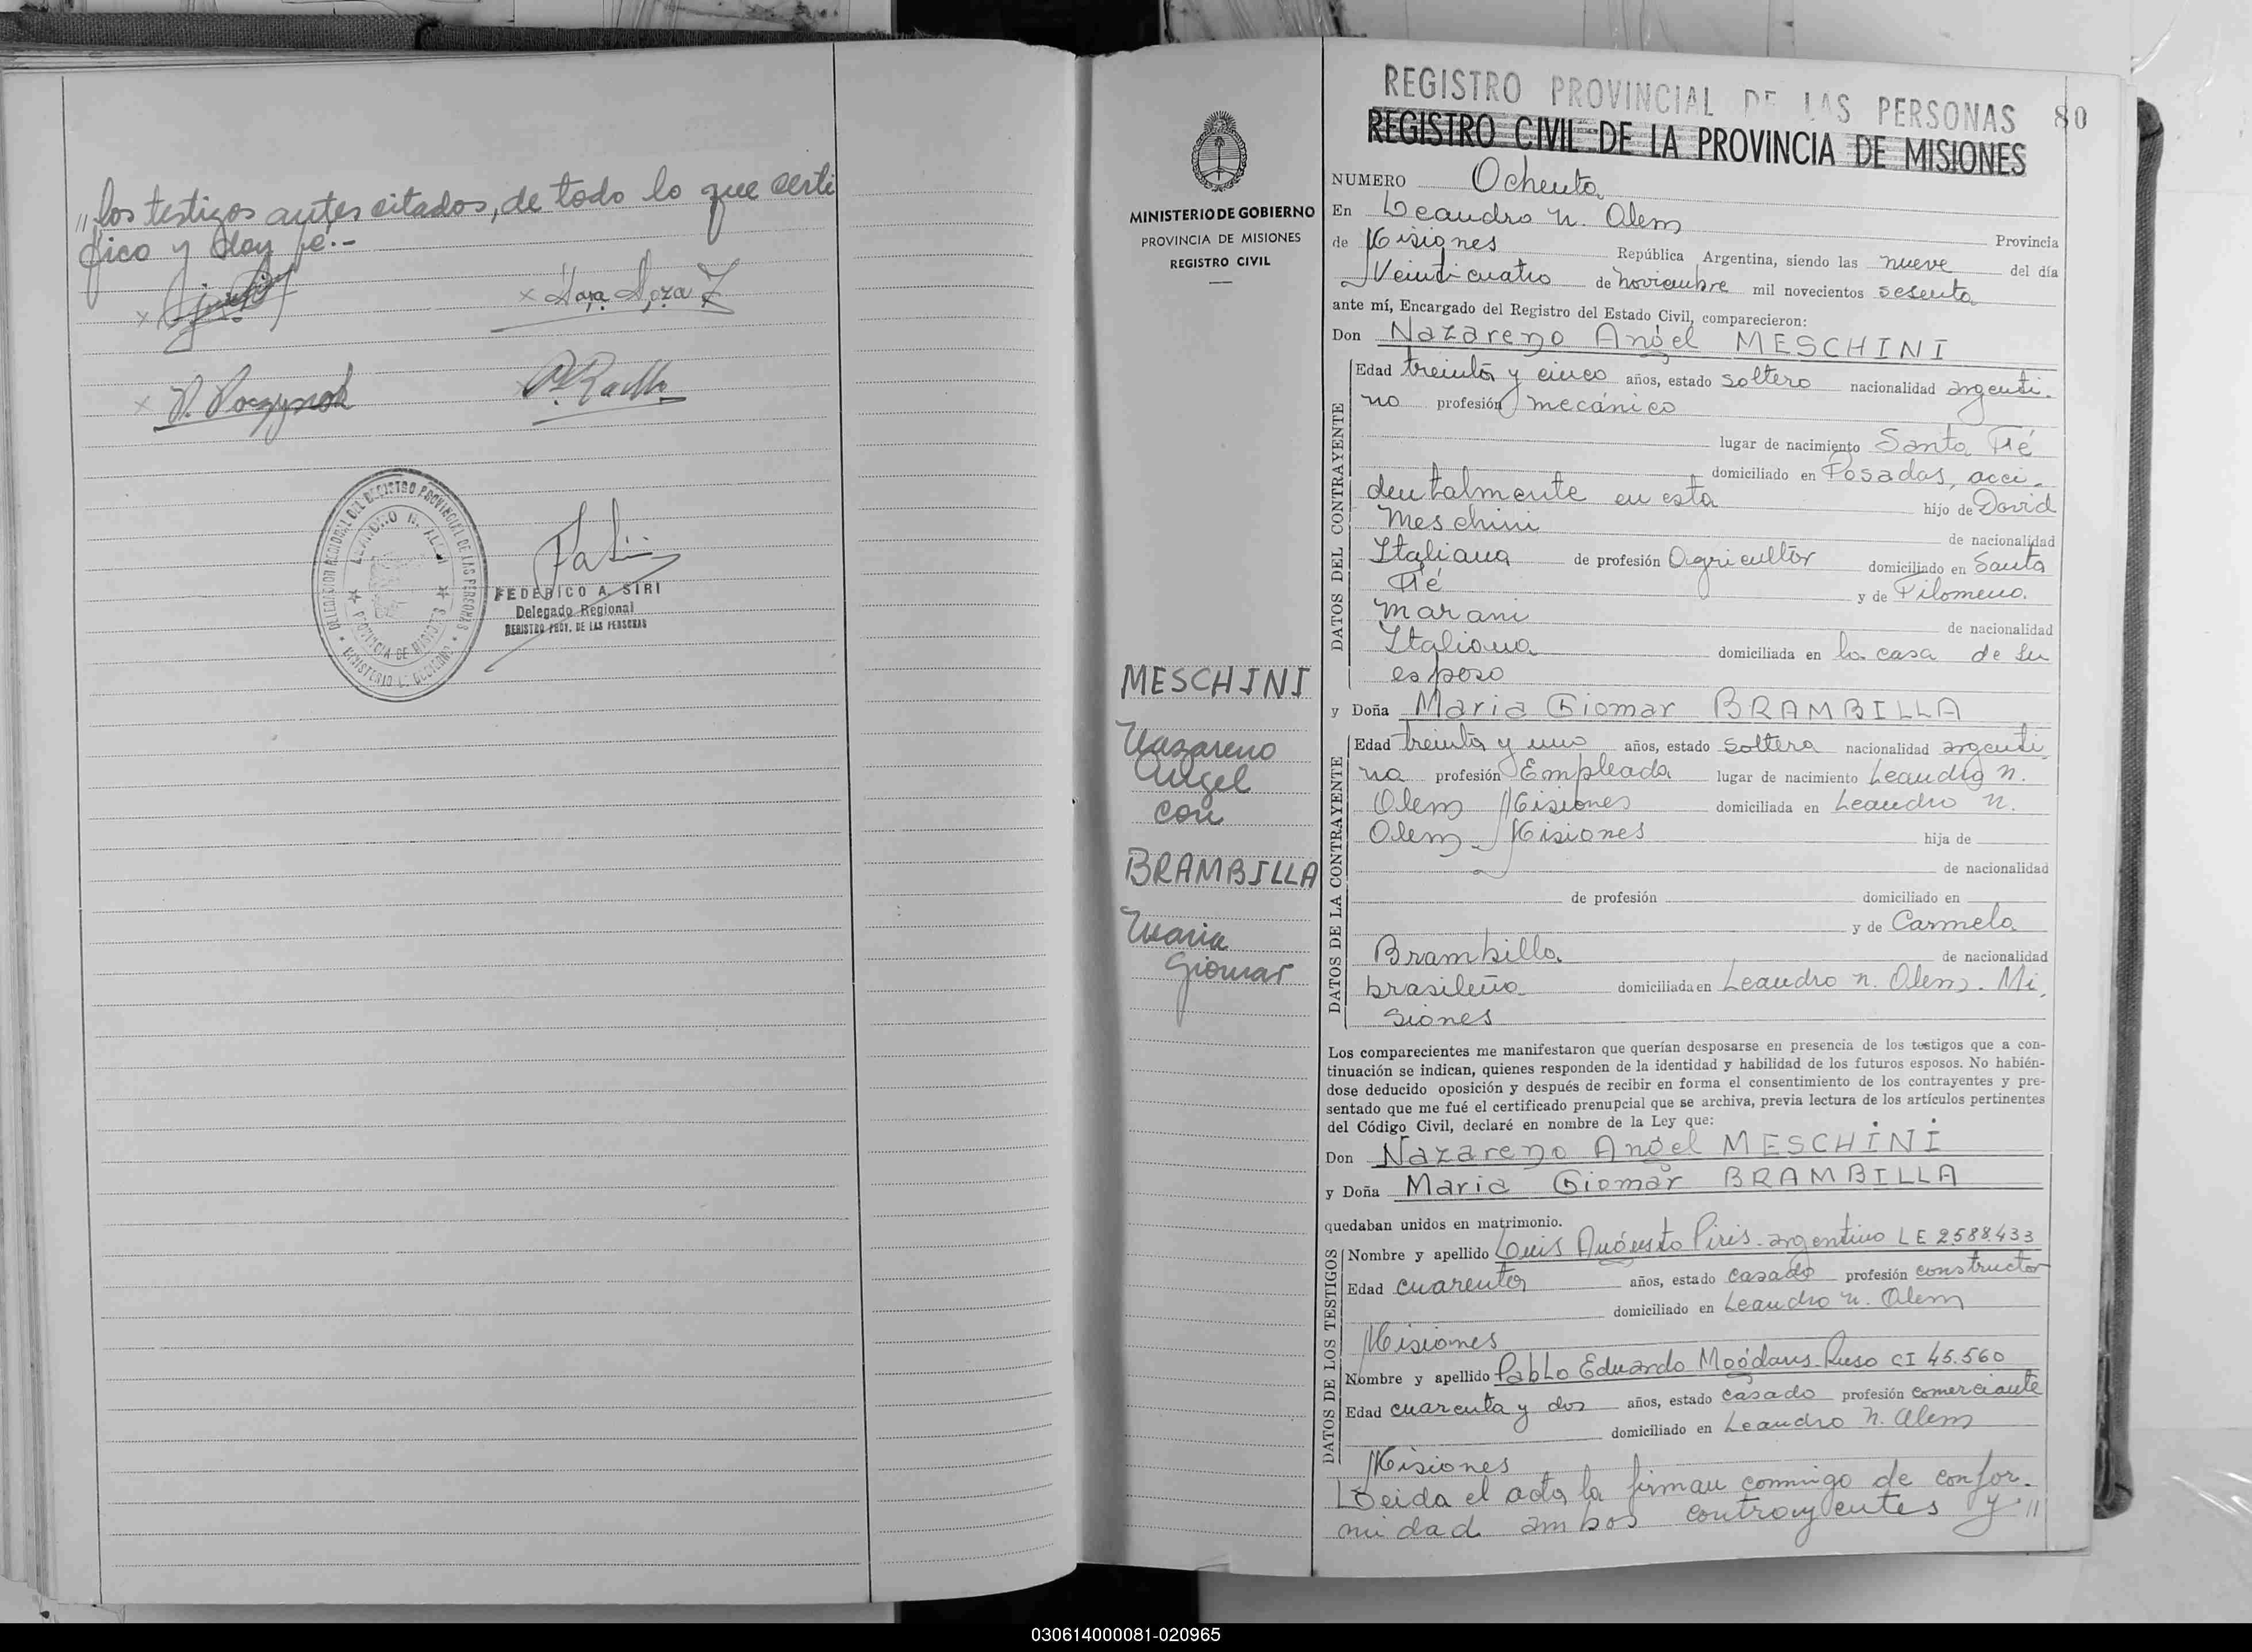 "los testigos antes citados, de todo lo que certi
fico y doy fé.-
FEDERICO A. SIRI
Delegado Regional
REGISTRO PROV. DE LAS PERSONAS
DELEGACION REGIONAL DEL REGISTRO PROVINCIAL DE LAS PERSONAS
LEANDRO N. ALEM
PROVINCIA DE MISIONES
MINISTERIO DE GOBIERNO
MINISTERIO DE GOBIERNO
PROVINCIA DE MISIONES
REGISTRO CIVIL
MESCHINI
Nazareno
Angel
con
BRAMBILLA
Maria
Giomar
REGISTRO PROVINCIAL DE LAS PERSONAS 80
REGISTRO CIVIL DE LA PROVINCIA DE MISIONES
NUMERO Ochenta
En Leandro N. Alem Provincia
de Misiones República Argentina, siendo las nueve del día
Veinticuatro de noviembre mil novecientos sesenta
ante mí, Encargado del Registro del Estado Civil, comparecieron:
Don Nazareno Angel MESCHINI
DATOS DEL CONTRAYENTE
Edad treinta y cinco años, estado soltero nacionalidad argenti-
no profesión mecánico
lugar de nacimiento Santa Fé
domiciliado en Posadas, acci-
dentalmente en esta hijo de David
Meschini de nacionalidad
Italiana de profesión Agricultor domiciliado en Santa
Fé y de Filomena
Marani de nacionalidad
Italiana domiciliada en la casa de su
esposo
y Doña Maria Giomar BRAMBILLA
DATOS DE LA CONTRAYENTE
Edad treinta y uno años, estado soltera nacionalidad argenti
na profesión Empleada lugar de nacimiento Leandro N.
Alem Misiones domiciliada en Leandro N.
Alem - Misiones hija de
de nacionalidad
de profesión domiciliado en
y de Carmela
Brambilla de nacionalidad
brasileña domiciliada en Leandro N. Alem. Mi
siones
Los comparecientes me manifestaron que querían desposarse en presencia de los testigos que a con-
tinuación se indican, quienes responden de la identidad y habilidad de los futuros esposos. No habién-
dose deducido oposición y después de recibir en forma el consentimiento de los contrayentes y pre-
sentado que me fué el certificado prenupcial que se archiva, previa lectura de los artículos pertinentes
del Código Civil, declaré en nombre de la Ley que:
Don Nazareno Angel MESCHINI
y Doña Maria Giomar BRAMBILLA
quedaban unidos en matrimonio.
DATOS DE LOS TESTIGOS
Nombre y apellido Luis Augusto Piris - argentino LE 2588433
Edad cuarenta años, estado casado profesión constructor
domiciliado en Leandro N. Alem
Misiones
Nombre y apellido Pablo Eduardo Mogdans - Ruso CI 45.560
Edad cuarenta y dos años, estado casado profesión comerciante
domiciliado en Leandro N. Alem
Misiones
Leida el acta la firman conmigo de confor-
midad ambos contrayentes y "
030614000081-020965